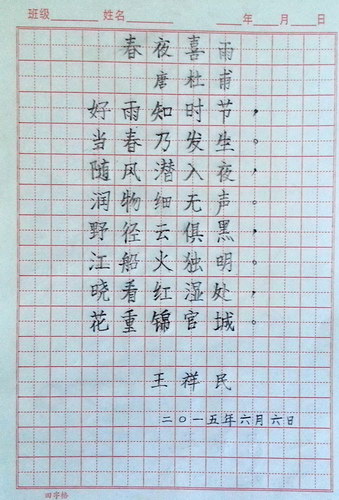 班级 姓名 年 月 日
春夜喜雨
唐 杜甫
好雨知时节，
当春乃发生。
随风潜入夜，
润物细无声。
野径云俱黑，
江船火独明。
晓看红湿处，
花重锦官城。
王祥民
二〇一五年六月六日
田字格